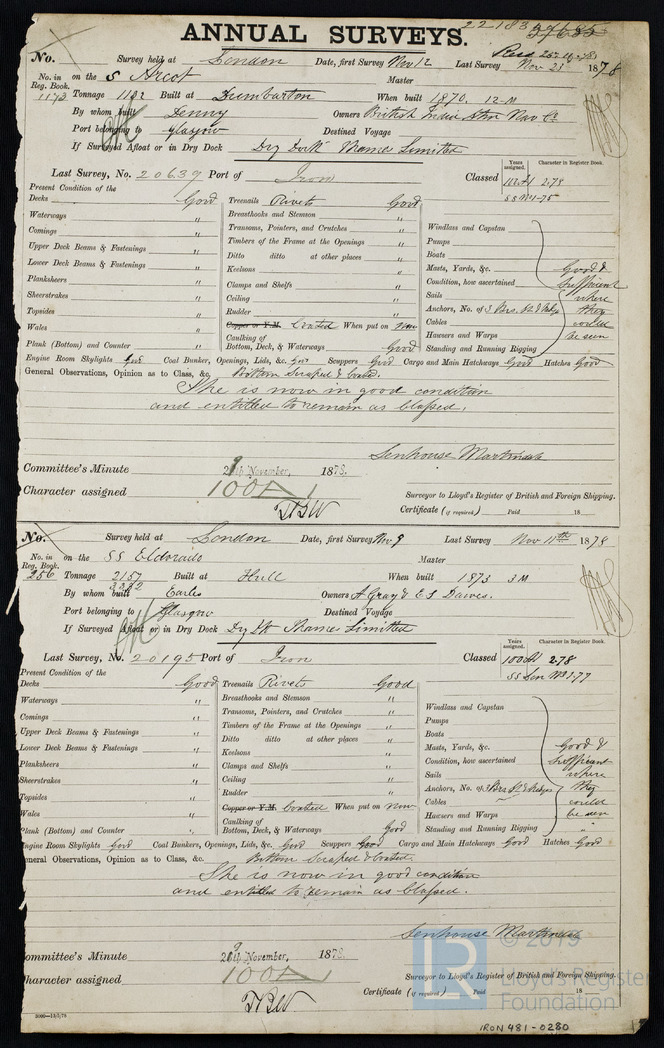 ANNUAL SURVEYS.
22183
No. Survey held at London Date, first Survey Nov 12 Last Survey Nov 23 1878
No. in Reg. Book. 1173 on the S Arcot Master
Tonnage Built at Dumbarton When built 1870. 12 M
By whom built Denny Owners British India Stm Nav Co
Port belonging to Glasgow Destined Voyage
If Surveyed Afloat or in Dry Dock Dry Dock Thames Limited
Last Survey, No. 20639 Port of Iron Classed
Years assigned. Character in Register Book.
100A1 2.78
Present Condition of the
Decks Good
Waterways "
Comings "
Upper Deck Beams & Fastenings "
Lower Deck Beams & Fastenings "
Planksheers "
Sheerstrakes "
Topsides "
Wales "
Plank (Bottom) and Counter "
Treenails Rivets Good
Breasthooks and Stemson "
Transoms, Pointers, and Crutches "
Timbers of the Frame at the Openings "
Ditto ditto at other places "
Keelsons "
Clamps and Shelfs "
Ceiling "
Rudder "
Copper or Y.M. Coated When put on Now
Caulking of Bottom, Deck, & Waterways Good
Windlass and Capstan
Pumps
Boats
Masts, Yards, &c.
Condition, how ascertained
Sails
Anchors, No. of 3 Brs.
Cables
Hawsers and Warps
Standing and Running Rigging
Good & sufficient where they could be seen
Engine Room Skylights Good Coal Bunker, Openings, Lids, &c. Good Scuppers Good Cargo and Main Hatchways Good Hatches Good
General Observations, Opinion as to Class, &c. Bottom Scraped & Coated.
She is now in good condition
and entitled to remain as Classed.
Senhouse Martindale
Committee's Minute 29th November, 1878.
Character assigned 100A1
Surveyor to Lloyd's Register of British and Foreign Shipping.
Certificate (if required) Paid 18
No. Survey held at London Date, first Survey Nov 9 Last Survey Nov 11th 1878
No. in Reg. Book. 256 on the SS Eldorado Master
Tonnage 2157 Built at Hull When built 1873 3 M
3332
By whom built Earles Owners A Gray & E S Dawes.
Port belonging to Glasgow Destined Voyage
If Surveyed Afloat or in Dry Dock Dry Dk Thames Limited
Last Survey, No. 20195 Port of Iron Classed
Years assigned. Character in Register Book.
100A1 2.78
Present Condition of the
Decks Good
Waterways "
Comings "
Upper Deck Beams & Fastenings "
Lower Deck Beams & Fastenings "
Planksheers "
Sheerstrakes "
Topsides "
Wales "
Plank (Bottom) and Counter "
Treenails Rivets Good
Breasthooks and Stemson "
Transoms, Pointers, and Crutches "
Timbers of the Frame at the Openings "
Ditto ditto at other places "
Keelsons "
Clamps and Shelfs "
Ceiling "
Rudder "
Copper or Y.M. Coated When put on Now
Caulking of Bottom, Deck, & Waterways Good
Windlass and Capstan
Pumps
Boats
Masts, Yards, &c.
Condition, how ascertained
Sails
Anchors, No. of 3 Brs.
Cables
Hawsers and Warps
Standing and Running Rigging
Good & sufficient where they could be seen
Engine Room Skylights Good Coal Bunkers, Openings, Lids, &c. Good Scuppers Good Cargo and Main Hatchways Good Hatches Good
General Observations, Opinion as to Class, &c. Bottom Scraped & Coated.
She is now in good condition
and entitled to remain as Classed.
Senhouse Martindale
Committee's Minute November, 1878.
Character assigned 100A1
Surveyor to Lloyd's Register of British and Foreign Shipping.
Certificate (if required) Paid 18
2000—13/5/78
LR © 2019 Lloyd's Register Foundation
IRON 481-0280